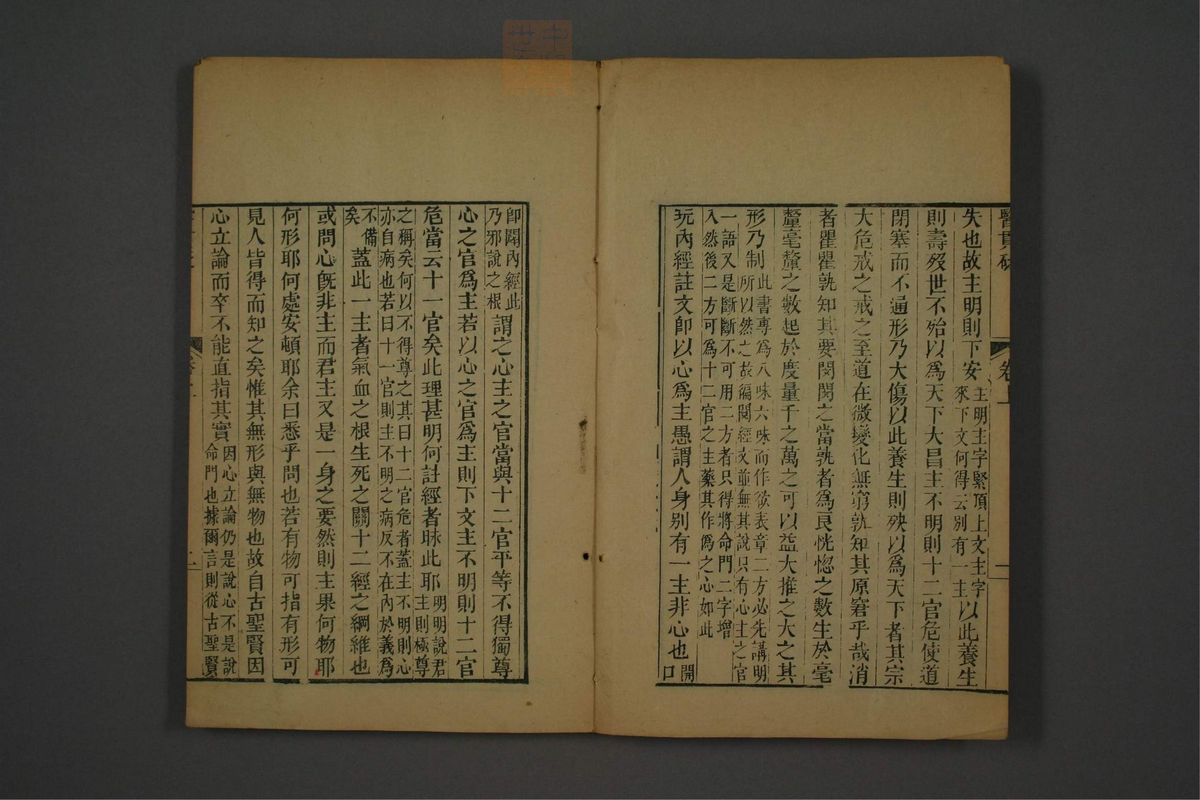 醫貫砭
卷上
二
失也故主明則下安主明主字緊頂上文主字來下文何得云別有一主以此養生
則壽歿世不殆以為天下大昌主不明則十二官危使道
閉塞而不通形乃大傷以此養生則殃以為天下者其宗
大危戒之戒之至道在微變化無窮孰知其原窘乎哉消
者瞿瞿孰知其要閔閔之當孰者為良恍惚之數生於毫
釐毫釐之數起於度量千之萬之可以益大推之大之其
形乃制此書專為八味六味而作欲表章二方必先講明所以然之故編閱經文並無其說只有心主之官
一語又是斷斷不可用二方者只得將命門二字增入然後二方可為十二官之主藥其作為之心如此
玩內經註文即以心為主愚謂人身別有一主非心也開口
即闢內經此乃邪說之根謂之心主之官當與十二官平等不得獨尊
心之官為主若以心之官為主則下文主不明則十二官
危當云十一官矣此理甚明何註經者昧此耶明明說君主則極尊
之稱矣何以不得尊之其曰十二官危者蓋主不明則心亦自病也若曰十一官則主不明之病反不在內於義為
不備矣蓋此一主者氣血之根生死之關十二經之綱維也
或問心既非主而君主又是一身之要然則主果何物耶
何形耶何處安頓耶余曰悉乎問也若有物可指有形可
見人皆得而知之矣惟其無形與無物也故自古聖賢因
心立論而卒不能直指其實因心立論仍是說心不是說命門也據爾言則從古聖賢